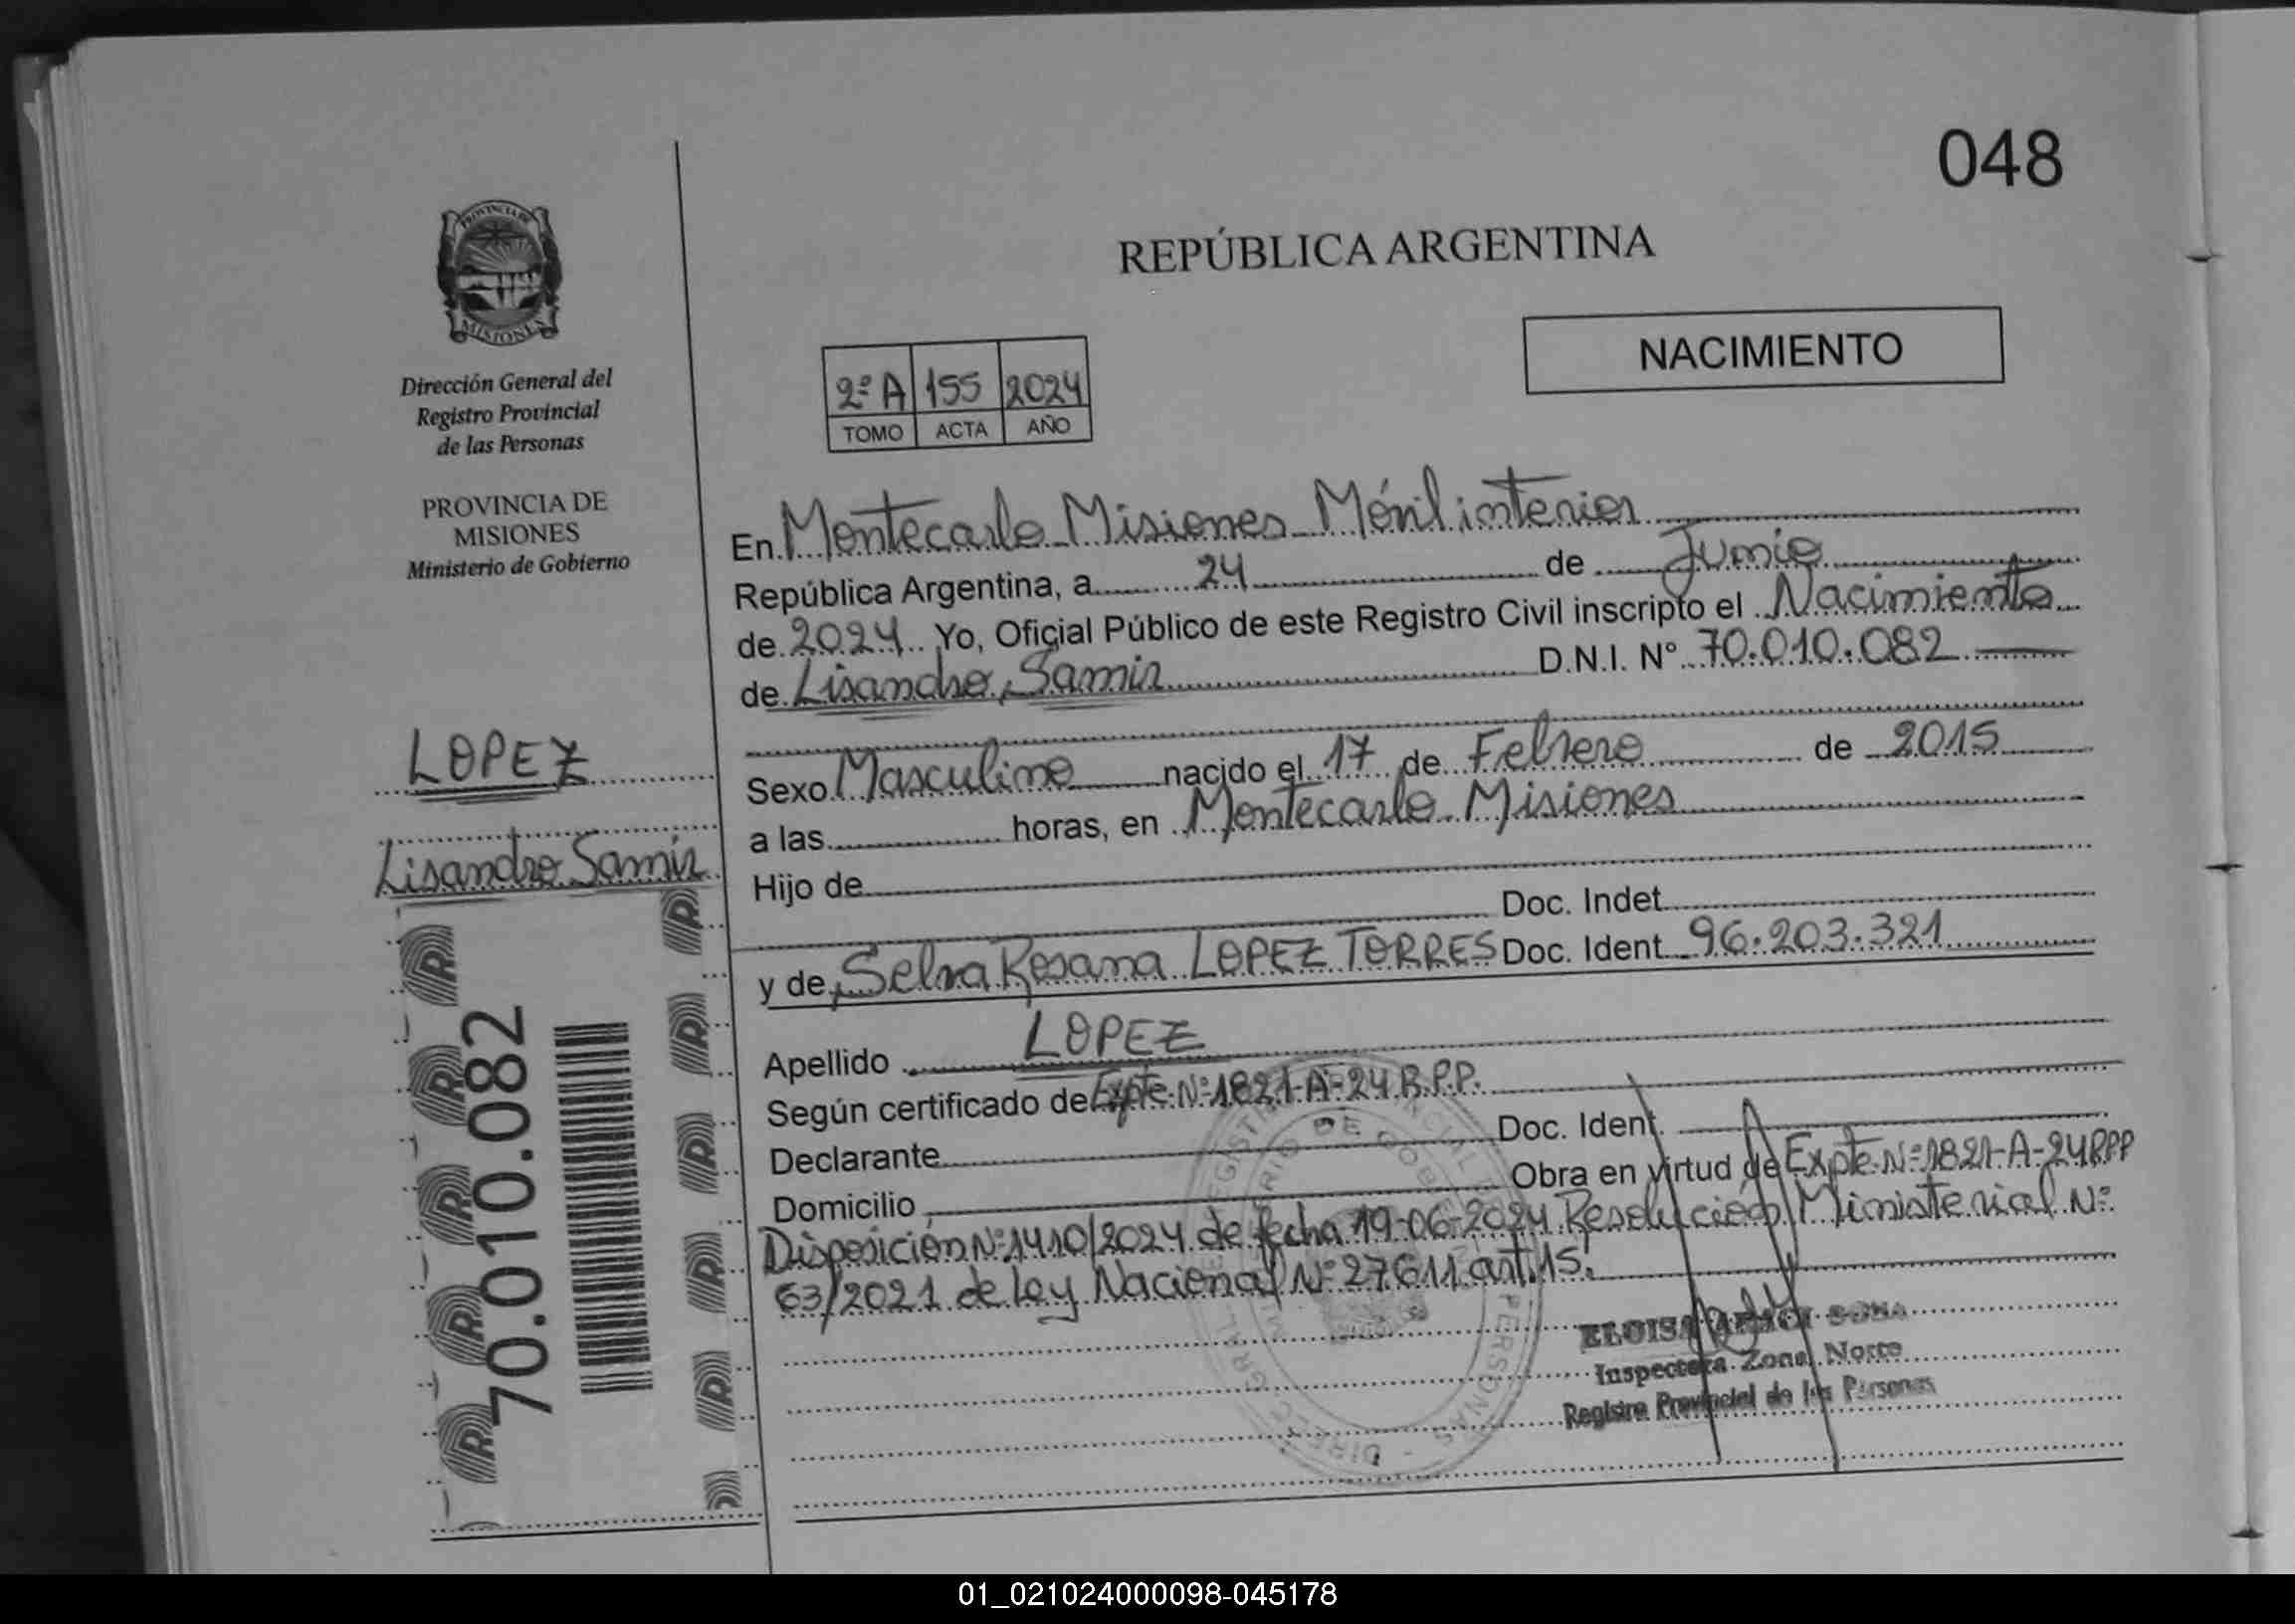 048
PROVINCIA DE
MISIONES
Dirección General del
Registro Provincial
de las Personas
PROVINCIA DE
MISIONES
Ministerio de Gobierno
LOPEZ
Lisandro Samir
70.010.082
REPÚBLICA ARGENTINA
NACIMIENTO
2º A 155 2024
TOMO ACTA AÑO
En Montecarlo Misiones Móvil interior
República Argentina, a 24 de Junio
de 2024 Yo, Oficial Público de este Registro Civil inscripto el Nacimiento
de Lisandro Samir D.N.I. N° 70.010.082
Sexo Masculino nacido el 17 de Febrero de 2015
a las horas, en Montecarlo Misiones
Hijo de
Doc. Indet.
y de Selva Rosana LOPEZ TORRES Doc. Ident. 96.203.321
Apellido LOPEZ
Según certificado de Expte. Nº 1821-A-24 R.P.P.
Doc. Ident.
Declarante
Obra en virtud de Expte. Nº 1821-A-24 RPP
Domicilio
Disposición Nº 1410/2024 de fecha 19-06-2024 Resolución Ministerial Nº
63/2021 de Ley Nacional Nº 27611 art. 15.
ELOISA
Inspectora Zona Norte
Registro Provincial de las Personas
01_021024000098-045178